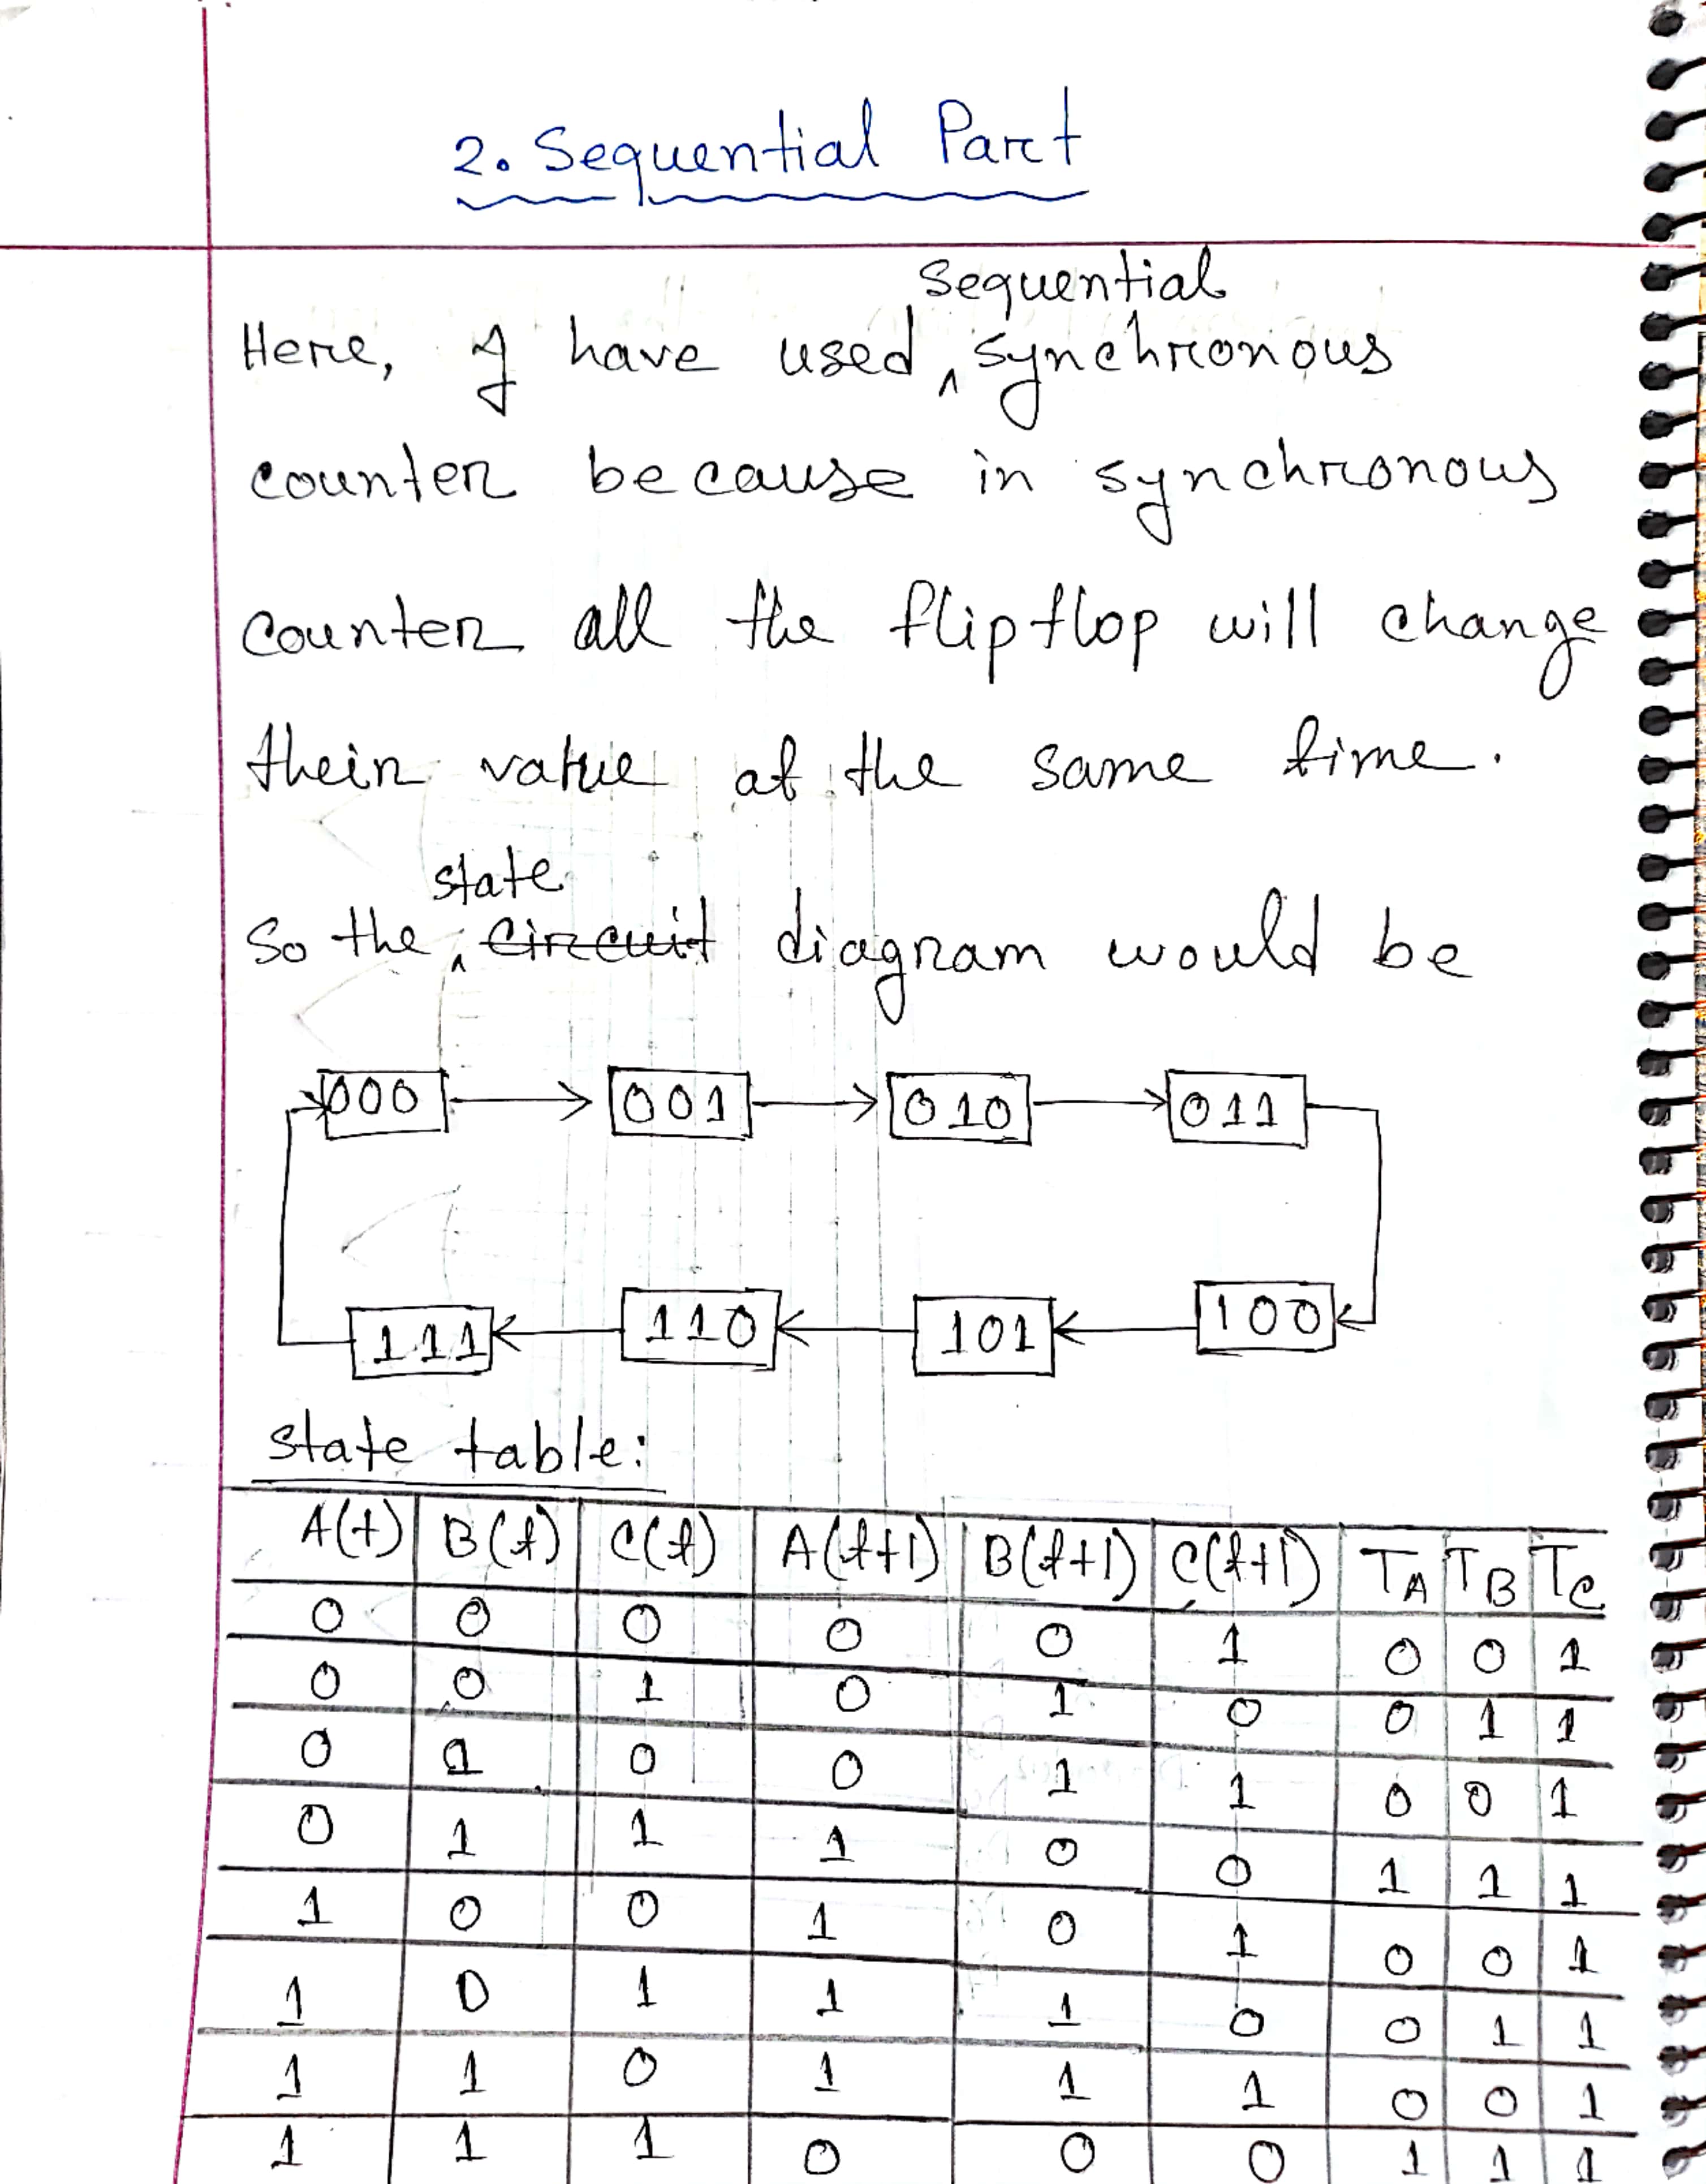 2. Sequential Part
Sequential
Here, I have used ^ synchronous
counter because in synchronous
counter all the flipflop will change
their value at the same time.
state
So the ^ circuit diagram would be
000 001 010 011
111 110 101 100
State table:
A(t) B(t) C(t) A(t+1) B(t+1) C(t+1) TA TB TC
0 0 0 0 0 1 0 0 1
0 0 1 0 1 0 0 1 1
0 1 0 0 1 1 0 0 1
0 1 1 1 0 0 1 1 1
1 0 0 1 0 1 0 0 1
1 0 1 1 1 0 0 1 1
1 1 0 1 1 1 0 0 1
1 1 1 0 0 0 1 1 1